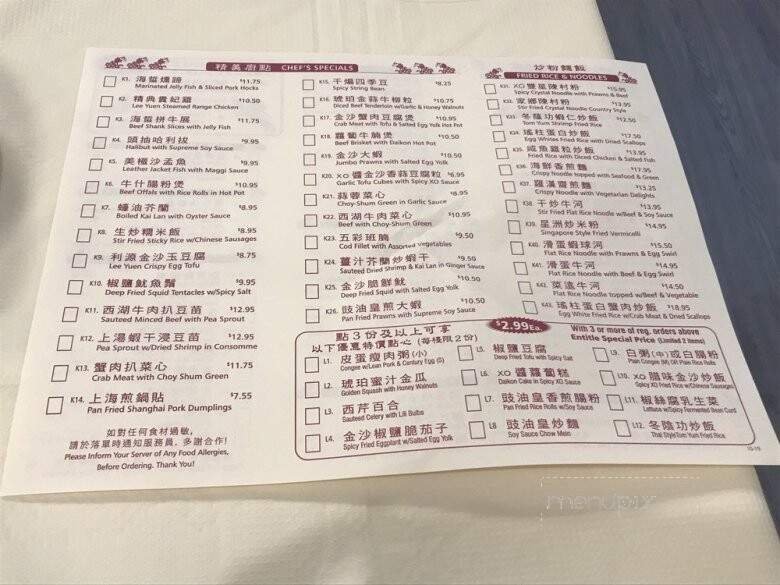 精美廚點 CHEF'S SPECIALS
K1. 海蜇燻蹄 $11.75
Marinated Jelly Fish & Sliced Pork Hocks
K2. 精典貴妃雞 $10.50
Lee Yuen Steamed Range Chicken
K3. 海蜇拼牛展 $11.75
Beef Shank Slices with Jelly Fish
K4. 頭抽哈利拔 $9.95
Halibut with Supreme Soy Sauce
K5. 美極沙孟魚 $9.95
Leather Jacket Fish with Maggi Sauce
K6. 牛什腸粉煲 $10.95
Beef Offals with Rice Rolls in Hot Pot
K7. 蠔油芥蘭 $8.95
Boiled Kai Lan with Oyster Sauce
K8. 生炒糯米飯 $8.95
Stir Fried Sticky Rice w/Chinese Sausages
K9. 利源金沙玉豆腐 $8.75
Lee Yuen Crispy Egg Tofu
K10. 椒鹽魷魚鬚 $9.95
Deep Fried Squid Tentacles w/Spicy Salt
K11. 西湖牛肉扒豆苗 $12.95
Sauteed Minced Beef with Pea Sprout
K12. 上湯蝦干浸豆苗 $12.95
Pea Sprout w/Dried Shrimp in Consomme
K13. 蟹肉扒菜心 $11.75
Crab Meat with Choy Shum Green
K14. 上海煎鍋貼 $7.55
Pan Fried Shanghai Pork Dumplings
如對任何食材過敏,
請於落單時通知服務員, 多謝合作!
Please Inform Your Server of Any Food Allergies,
Before Ordering. Thank You!
K15. 干煸四季豆 $8.25
Spicy String Bean
K16. 琥珀金蒜牛柳粒 $10.75
Diced Beef Tenderloin w/Garlic & Honey Walnuts
K17. 金沙蟹肉豆腐煲 $10.95
Crab Meat with Tofu & Salted Egg Yolk Hot Pot
K18. 蘿蔔牛腩煲 $10.50
Beef Brisket with Daikon Hot Pot
K19. 金沙大蝦 $10.50
Jumbo Prawns with Salted Egg Yolk
K20. XO醬金沙香蒜豆腐粒 $6.95
Garlic Tofu Cubes with Spicy XO Sauce
K21. 蒜蓉菜心 $8.95
Choy-Shum Green in Garlic Sauce
K22. 西湖牛肉菜心 $10.95
Beef with Choy-Shum Green
K23. 五彩班腩 $9.50
Cod Fillet with Assorted Vegetables
K24. 薑汁芥蘭炒蝦干 $9.50
Sauteed Dried Shrimp & Kai Lan in Ginger Sauce
K25. 金沙脆鮮魷 $10.50
Deep Fried Squid with Salted Egg Yolk
K26. 豉油皇煎大蝦 $10.50
Pan Fried Prawns with Supreme Soy Sauce
炒粉麵飯
FRIED RICE & NOODLES
K31. XO雙星陳村粉 $15.95
Spicy Crystal Noodle with Prawns & Beef
K32. 家鄉陳村粉 $13.95
Stir Fried Crystal Noodle Country Style
K33. 冬陰功蝦仁炒飯 $12.50
Tom Yum Shrimp Fried Rice
K34. 瑤柱蛋白炒飯 $17.50
Egg Whites Fried Rice with Dried Scallops
K35. 咸魚雞粒炒飯 $13.95
Fried Rice with Diced Chicken & Salted Fish
K36. 海鮮香煎麵 $17.95
Crispy Noodle topped with Seafood & Green
K37. 羅漢齋煎麵 $13.25
Crispy Noodle with Vegetarian Delights
K38. 干炒牛河 $13.95
Stir Fried Flat Rice Noodle w/Beef & Soy Sauce
K39. 星洲炒米粉 $14.95
Singapore Style Fried Vermicelli
K40. 滑蛋蝦球河 $15.50
Flat Rice Noodle with Prawns & Egg Swirl
K41. 滑蛋牛河 $14.50
Flat Rice Noodle with Beef & Egg Swirl
K42. 菜遠牛河 $14.50
Flat Rice Noodle topped w/Beef & Vegetable
K43. 瑤柱蛋白蟹肉炒飯 $18.95
Egg White Fried Rice w/Crab Meat & Dried Scallops
點3份及以上可享
以下優惠特價點心 (每樣限2份)
$2.99Ea.
With 3 or more of reg. orders above
Entitle Special Price (Limited 2 items)
L1. 皮蛋瘦肉粥(小)
Congee w/Lean Pork & Century Egg (S)
L2. 琥珀蜜汁金瓜
Golden Squash with Honey Walnuts
L3. 西芹百合
Sauteed Celery with Lili Bulbs
L4. 金沙椒鹽脆茄子
Spicy Fried Eggplant w/Salted Egg Yolk
L5. 椒鹽豆腐
Deep Fried Tofu with Spicy Salt
L6. XO醬蘿蔔糕
Daikon Cake in Spicy XO Sauce
L7. 豉油皇香煎腸粉
Pan Fried Rice Rolls w/Soy Sauce
L8. 豉油皇炒麵
Soy Sauce Chow Mein
L9. 白粥(中)或白腸粉
Plain Congee (M) OR Plain Rice Rolls
L10. XO腊味金沙炒飯
Spicy XO Fried Rice w/Chinese Sausages
L11. 椒絲腐乳生菜
Lettuce w/Spicy Fermented Bean Curd
L12. 冬陰功炒飯
Thai Style Tom Yum Fried Rice
10-19
menupix